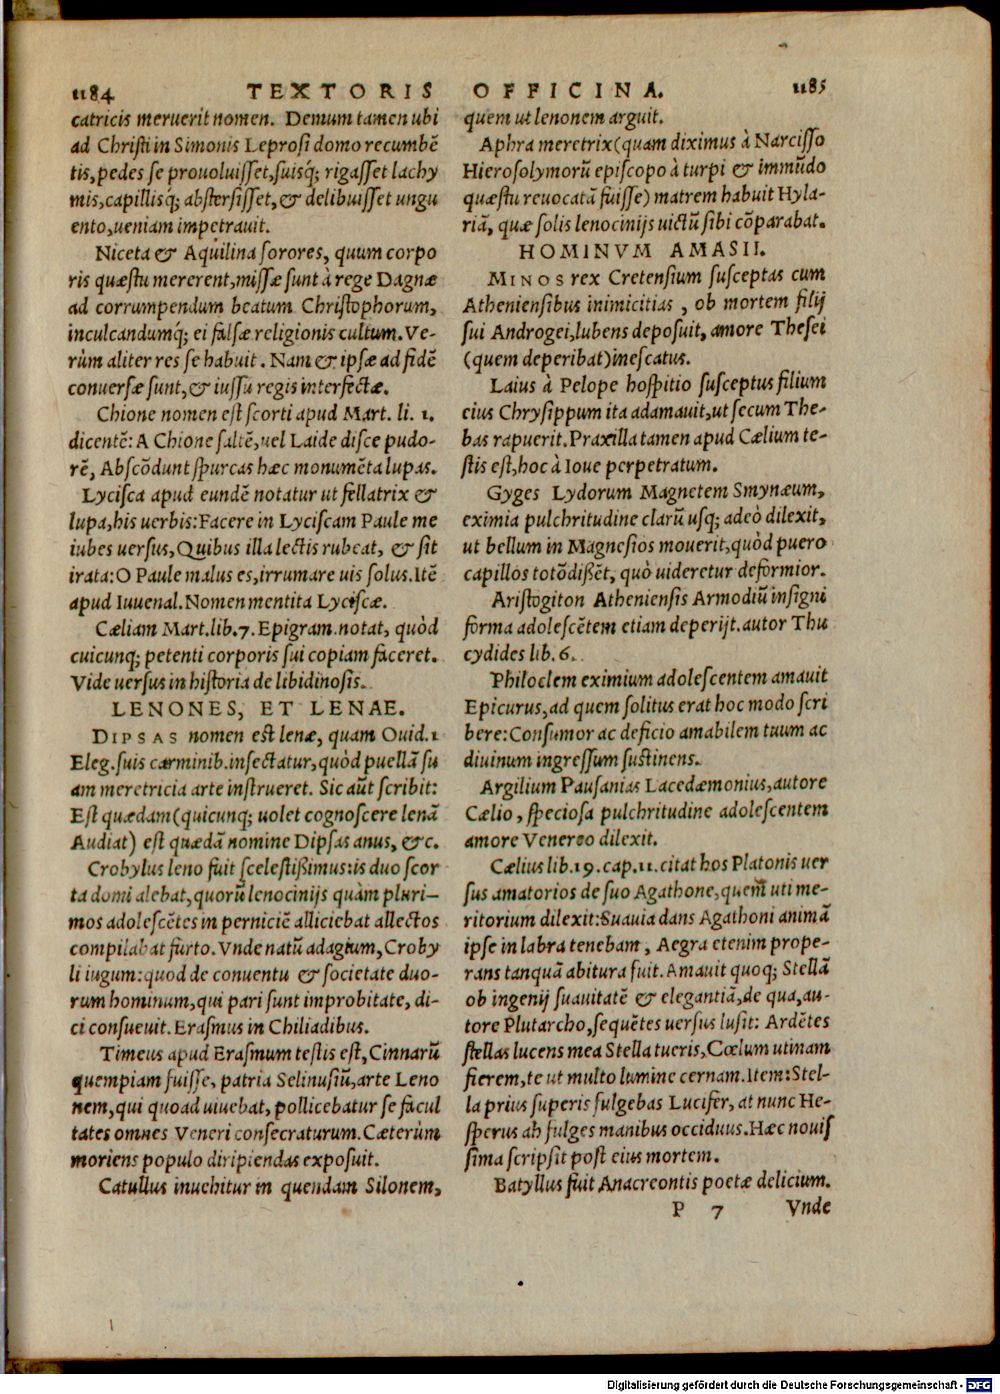 1184 TEXTORIS
catricis meruerit nomen. Demum tamen ubi
ad Christi in Simonis Leprosi domo recumbẽ
tis, pedes se prouoluisset, suisq́; rigasset lachy
mis, capillisq́; abstersisset, & delibuisset ungu
ento, ueniam impetrauit.
Niceta & Aquilina sorores, quum corpo
ris quæstu mererent, missæ sunt à rege Dagnæ
ad corrumpendum beatum Christophorum,
inculcandumq́; ei falsæ religionis cultum. Ve-
rùm aliter res se habuit. Nam & ipsæ ad fidẽ
conuersæ sunt, & iussu regis interfectæ.
Chione nomen est scorti apud Mart. li. 1.
dicentẽ: A Chione saltẽ, uel Laide disce pudo-
rẽ, Abscõdunt spurcas hæc monumẽta lupas.
Lycisca apud eundẽ notatur ut fellatrix &
lupa, his uerbis: Facere in Lyciscam Paule me
iubes uersus, Quibus illa lectis rubeat, & sit
irata: O Paule malus es, irrumare uis solus. Itẽ
apud Iuuenal. Nomen mentita Lyciscæ.
Cæliam Mart. lib. 7. Epigram. notat, quòd
cuicunq; petenti corporis sui copiam faceret.
Vide uersus in historia de libidinosis.
LENONES, ET LENAE.
DIPSAS nomen est lenæ, quam Ouid. 1
Eleg. suis carminib. insectatur, quòd puellã su
am meretricia arte instrueret. Sic aũt scribit:
Est quædam (quicunq; uolet cognoscere lenã
Audiat) est quædã nomine Dipsas anus, &c.
Crobylus leno fuit scelestißimus: is duo scor
ta domi alebat, quorũ lenocinijs quàm pluri-
mos adolescẽtes in perniciẽ alliciebat allectos
compilabat furto. Vnde natũ adagium, Croby
li iugum: quod de conuentu & societate duo-
rum hominum, qui pari sunt improbitate, di-
ci consueuit. Erasmus in Chiliadibus.
Timeus apud Erasmum testis est, Cinnarũ
quempiam fuisse, patria Selinusiũ, arte Leno
nem, qui quoad uiuebat, pollicebatur se facul
tates omnes Veneri consecraturum. Cæterùm
moriens populo diripiendas exposuit.
Catullus inuehitur in quendam Silonem,
OFFICINA. 1185
quem ut lenonem arguit.
Aphra meretrix (quam diximus à Narcisso
Hierosolymorũ episcopo à turpi & immũdo
quæstu reuocatã fuisse) matrem habuit Hyla-
riã, quæ solis lenocinijs uictũ sibi cõparabat.
HOMINVM AMASII.
MINOS rex Cretensium susceptas cum
Atheniensibus inimicitias, ob mortem filij
sui Androgei, lubens deposuit, amore Thesei
(quem deperibat) inescatus.
Laius à Pelope hospitio susceptus filium
eius Chrysippum ita adamauit, ut secum The-
bas rapuerit. Praxilla tamen apud Cælium te-
stis est, hoc à Ioue perpetratum.
Gyges Lydorum Magnetem Smynæum,
eximia pulchritudine clarũ usq; adeò dilexit,
ut bellum in Magnesios mouerit, quòd puero
capillos totõdißẽt, quò uideretur deformior.
Aristogiton Atheniensis Armodiũ insigni
forma adolescẽtem etiam deperijt. autor Thu
cydides lib. 6.
Philoclem eximium adolescentem amauit
Epicurus, ad quem solitus erat hoc modo scri
bere: Consumor ac deficio amabilem tuum ac
diuinum ingressum sustinens.
Argilium Pausanias Lacedæmonius, autore
Cælio, speciosa pulchritudine adolescentem
amore Venereo dilexit.
Cælius lib. 19. cap. 11. citat hos Platonis uer
sus amatorios de suo Agathone, quem uti me-
ritorium dilexit: Suauia dans Agathoni animã
ipse in labra tenebam, Aegra etenim prope-
rans tanquã abitura fuit. Amauit quoq; Stellã
ob ingenij suauitatẽ & elegantiã, de qua, au-
tore Plutarcho, sequẽtes uersus lusit: Ardẽtes
stellas lucens mea Stella tueris, Cœlum utinam
fierem, te ut multo lumine cernam. Item: Stel-
la prius superis fulgebas Lucifer, at nunc He-
sperus ah fulges manibus occiduus. Hæc nouis
sima scripsit post eius mortem.
Batyllus fuit Anacreontis poetæ delicium.
P 7 Vnde
Digitalisierung gefördert durch die Deutsche Forschungsgemeinschaft - DFG